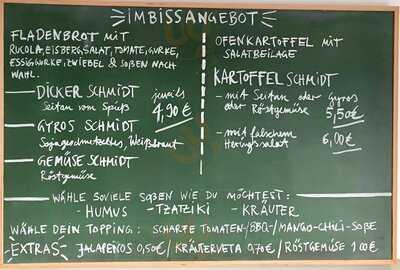 IMBISSANGEBOT
FLADENBROT MIT
RUCOLA, EISBERGSALAT, TOMATE, GURKE,
ESSIGGURKE, ZWIEBEL & SOßEN NACH
WAHL.
DICKER SCHMIDT jeweils
Seitan vom Spieß 4,90 €
GYROS SCHMIDT
Sojageschnetzeltes, Weißkraut
GEMÜSE SCHMIDT
Röstgemüse
OFENKARTOFFEL MIT
SALATBEILAGE
KARTOFFEL SCHMIDT
- mit Seitan oder Gyros
oder Röstgemüse 5,50€
- mit falschem 6,00€
Heringssalat
WÄHLE SOVIELE SOßEN WIE DU MÖCHTEST:
- HUMUS - TZATZIKI - KRÄUTER
WÄHLE DEIN TOPPING: SCHARFE TOMATEN-/BBQ-/MANGO-CHILI-SOßE
EXTRAS- JALAPENOS 0,50€ / KRÄUTERVETA 0,70€ / RÖSTGEMÜSE 1,00€